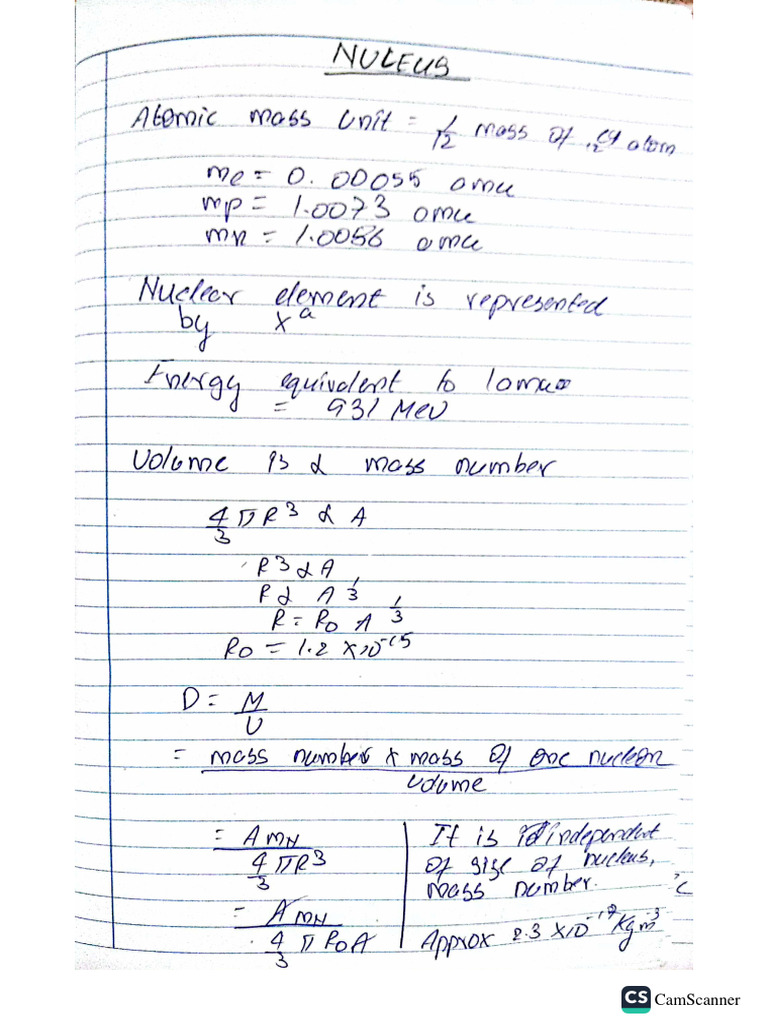 NUCLEUS
Atomic mass Unit = 1/12 mass of atom
me = 0.00055 amu
mp = 1.0073 amu
mn = 1.0056 amu
Nuclear element is represented
by x^a
Energy equivalent to 1amu
= 931 MeV
Volume is α mass number
4/3 πR^3 α A
R^3 α A
R α A^1/3
R = Ro A^1/3
Ro = 1.2 x10^-15
D = M/V
= mass number x mass of one nucleon / volume
= A mN / 4/3 πR^3
= A mN / 4/3 π RoA
It is independent
of size of nucleus,
mass number.
Approx 2.3 x10^-17 Kg m^-3
CS CamScanner